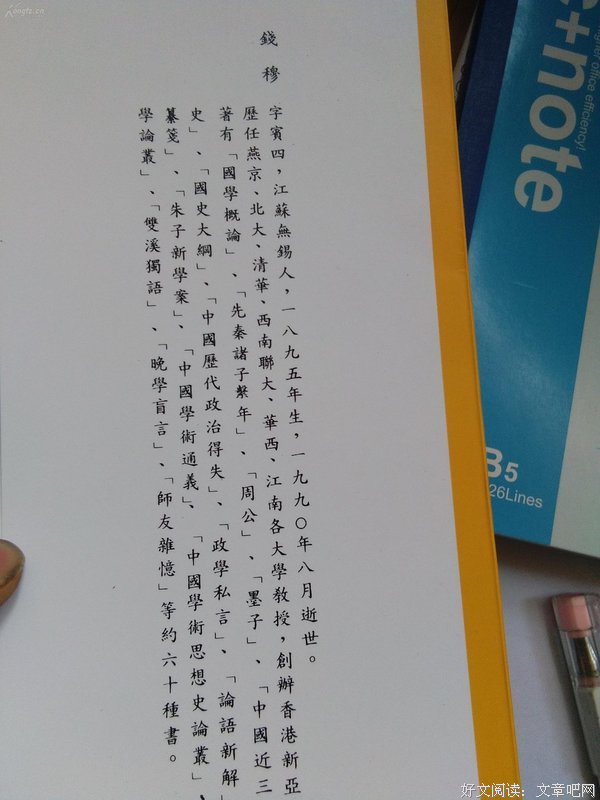 錢穆
字賓四，江蘇無錫人，一八九五年生，一九九〇年八月逝世。
歷任燕京、北大、清華、西南聯大、華西、江南各大學教授，創辦香港新亞
著有「國學概論」、「先秦諸子繫年」、「周公」、「墨子」、「中國近三
史」、「國史大綱」、「中國歷代政治得失」、「政學私言」、「論語新解」
纂箋」、「朱子新學案」、「中國學術通義」、「中國學術思想史論叢」、
學論叢」、「雙溪獨語」、「晚學盲言」、「師友雜憶」等約六十種書。
c+note
office efficiency!
B5
26Lines
好文阅读：文章吧网